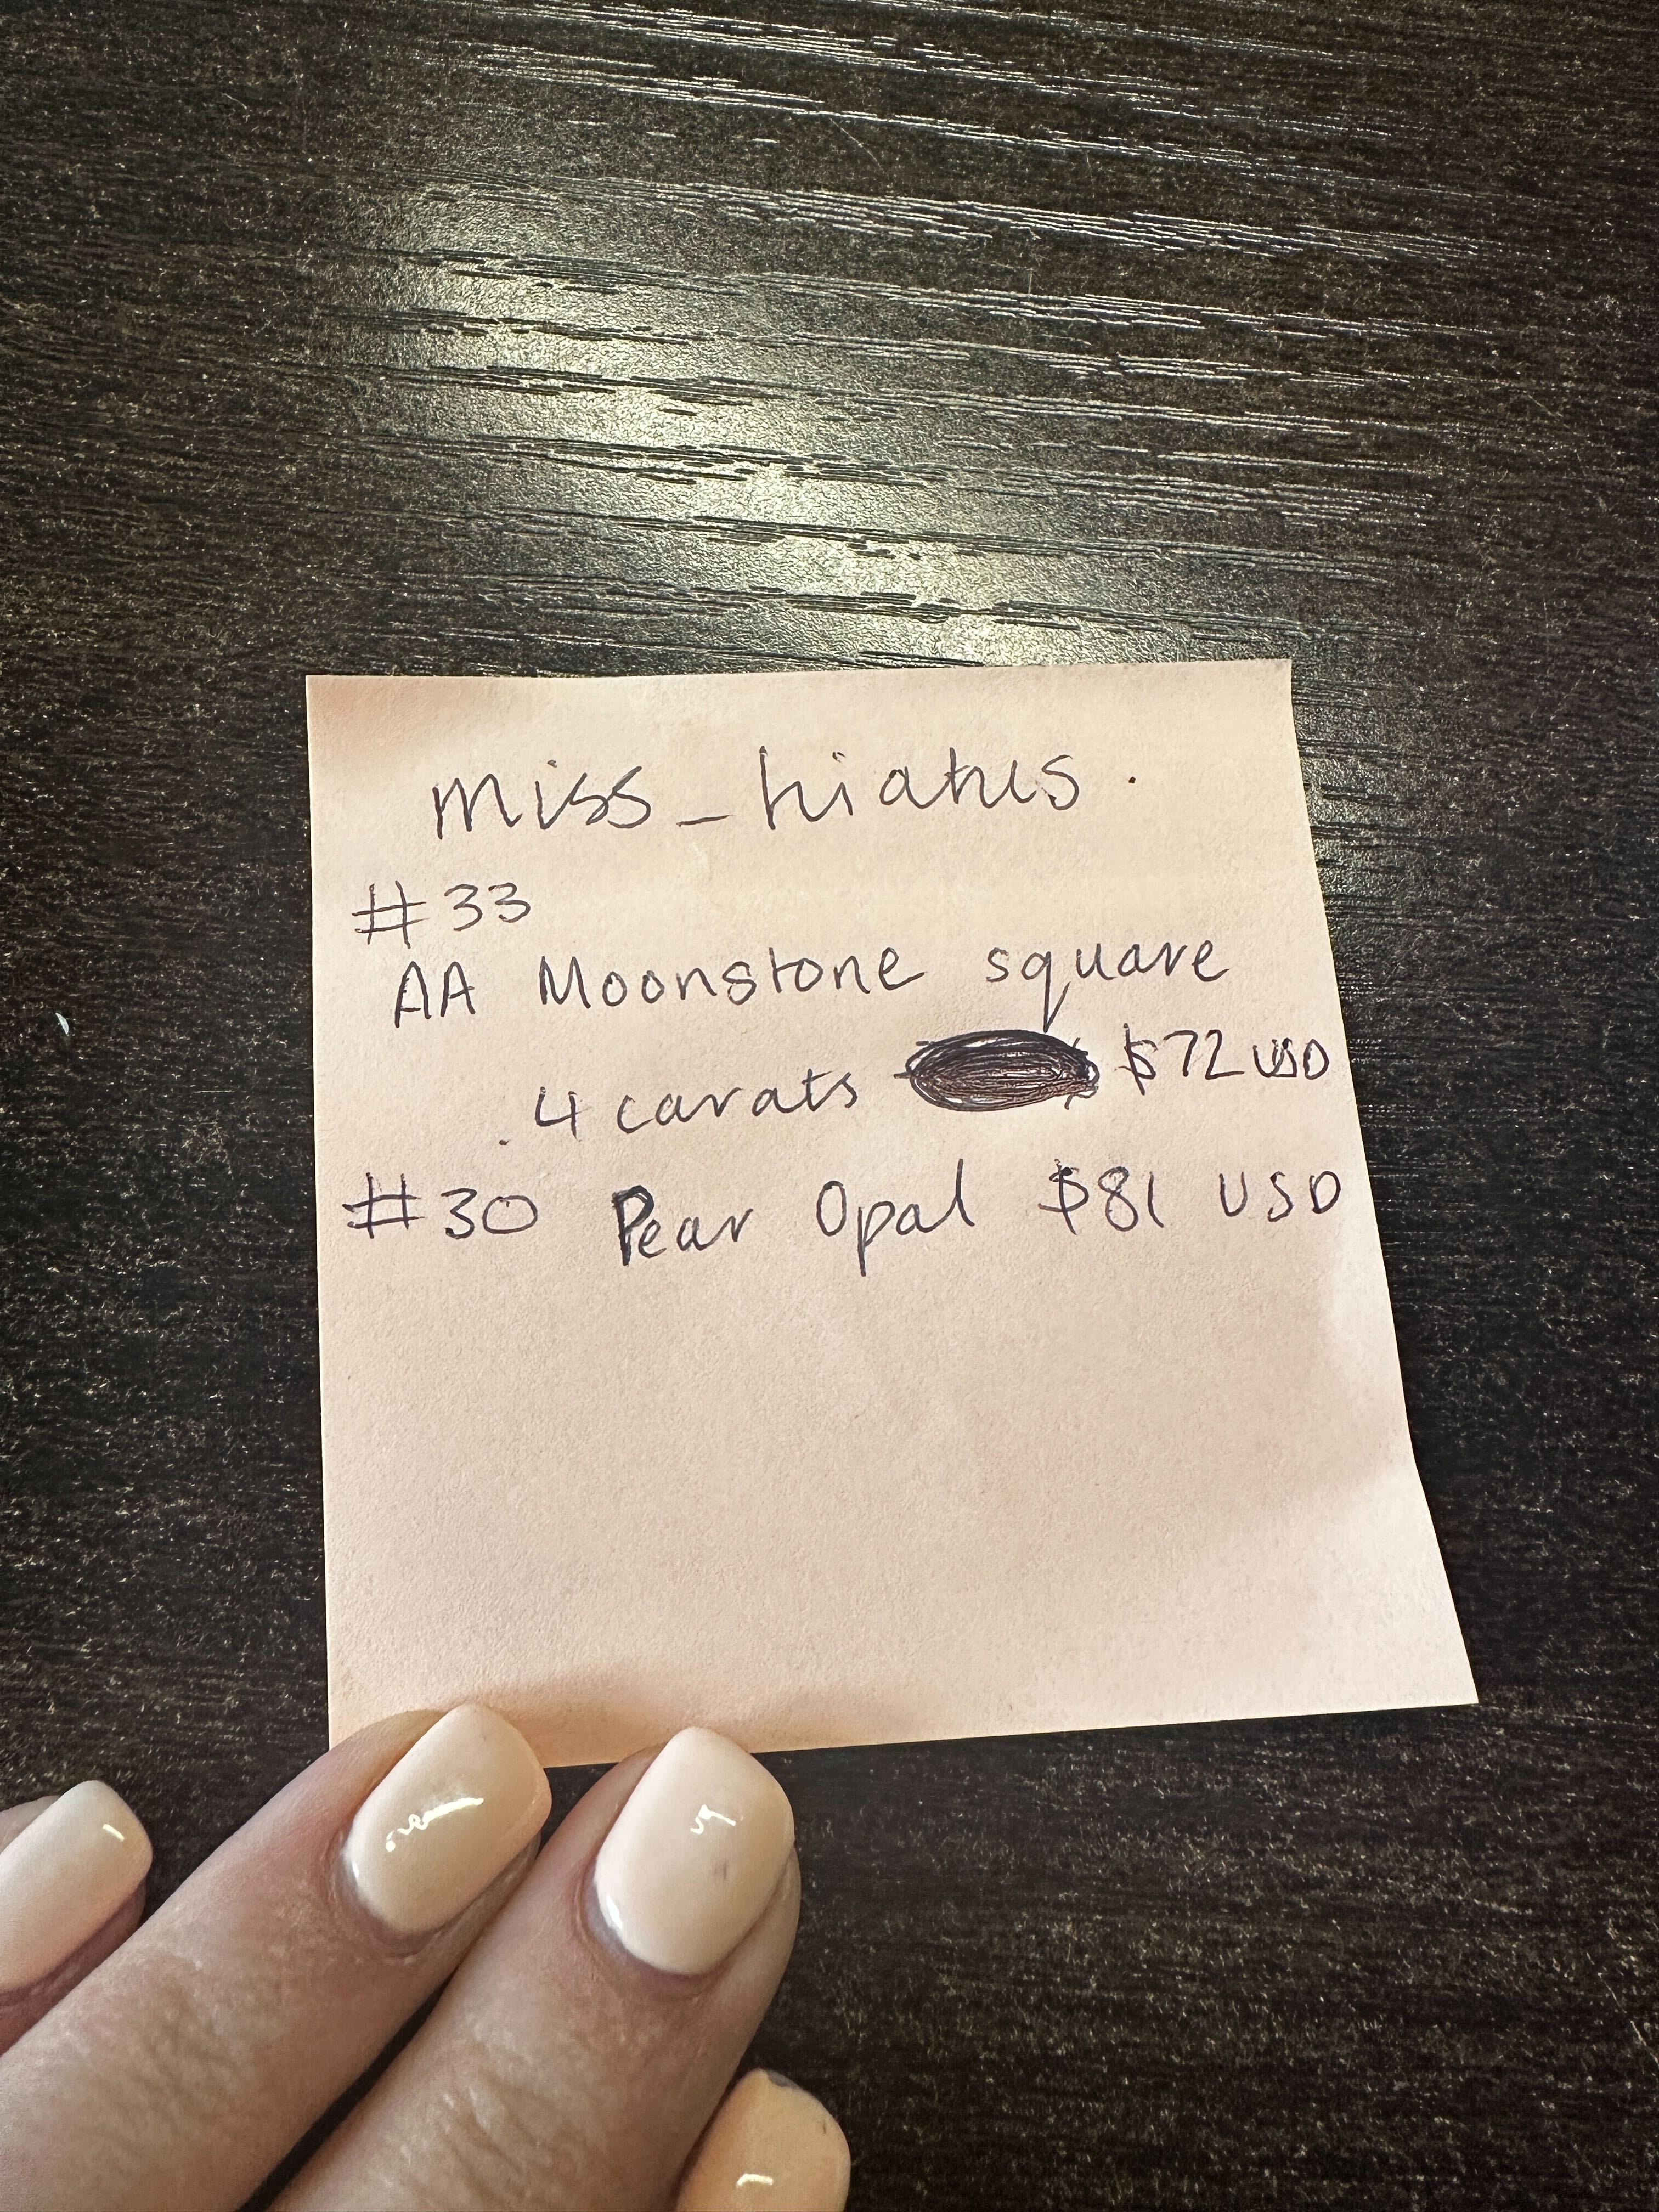 miss_hiatus.
#33
AA Moonstone square
.4 carats $72 USD
#30 Pear Opal $81 USD